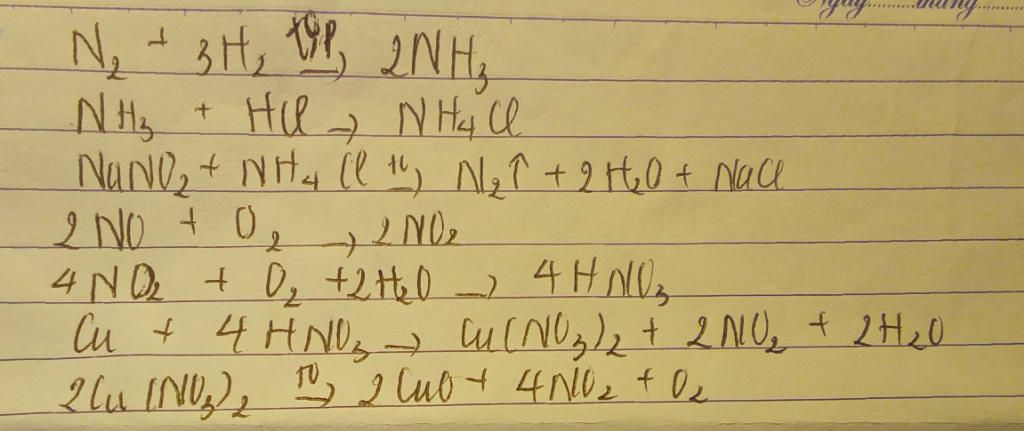 Ngày.........tháng.........
N₂ + 3H₂ t⁰,P → 2NH₃
NH₃ + HCl → NH₄Cl
NaNO₂ + NH₄Cl t⁰ → N₂↑ + 2H₂O + NaCl
2NO + O₂ → 2NO₂
4NO₂ + O₂ + 2H₂O → 4HNO₃
Cu + 4HNO₃ → Cu(NO₃)₂ + 2NO₂ + 2H₂O
2Cu(NO₃)₂ t⁰ → 2CuO + 4NO₂ + O₂